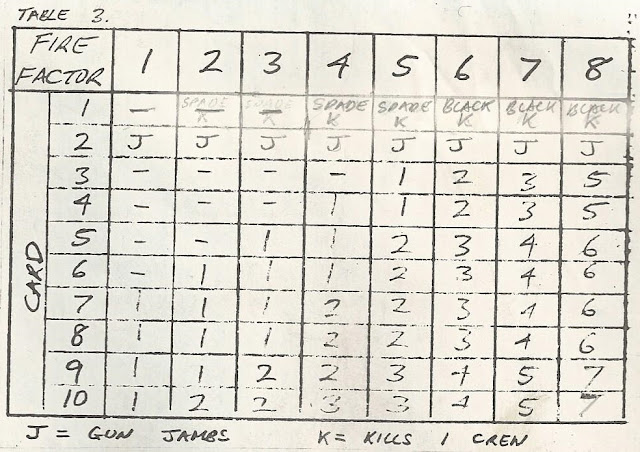 TABLE 3.
FIRE FACTOR 1 2 3 4 5 6 7 8
CARD
1 – SPADE K SPADE K SPADE K SPADE K BLACK K BLACK K BLACK K
2 J J J J J J J J
3 – – – – 1 2 3 5
4 – – – 1 1 2 3 5
5 – – 1 1 2 3 4 6
6 – 1 1 1 2 3 4 6
7 1 1 1 2 2 3 4 6
8 1 1 1 2 2 3 4 6
9 1 1 2 2 3 4 5 7
10 1 2 2 3 3 4 5 7
J = GUN JAMBS K = KILLS 1 CREN